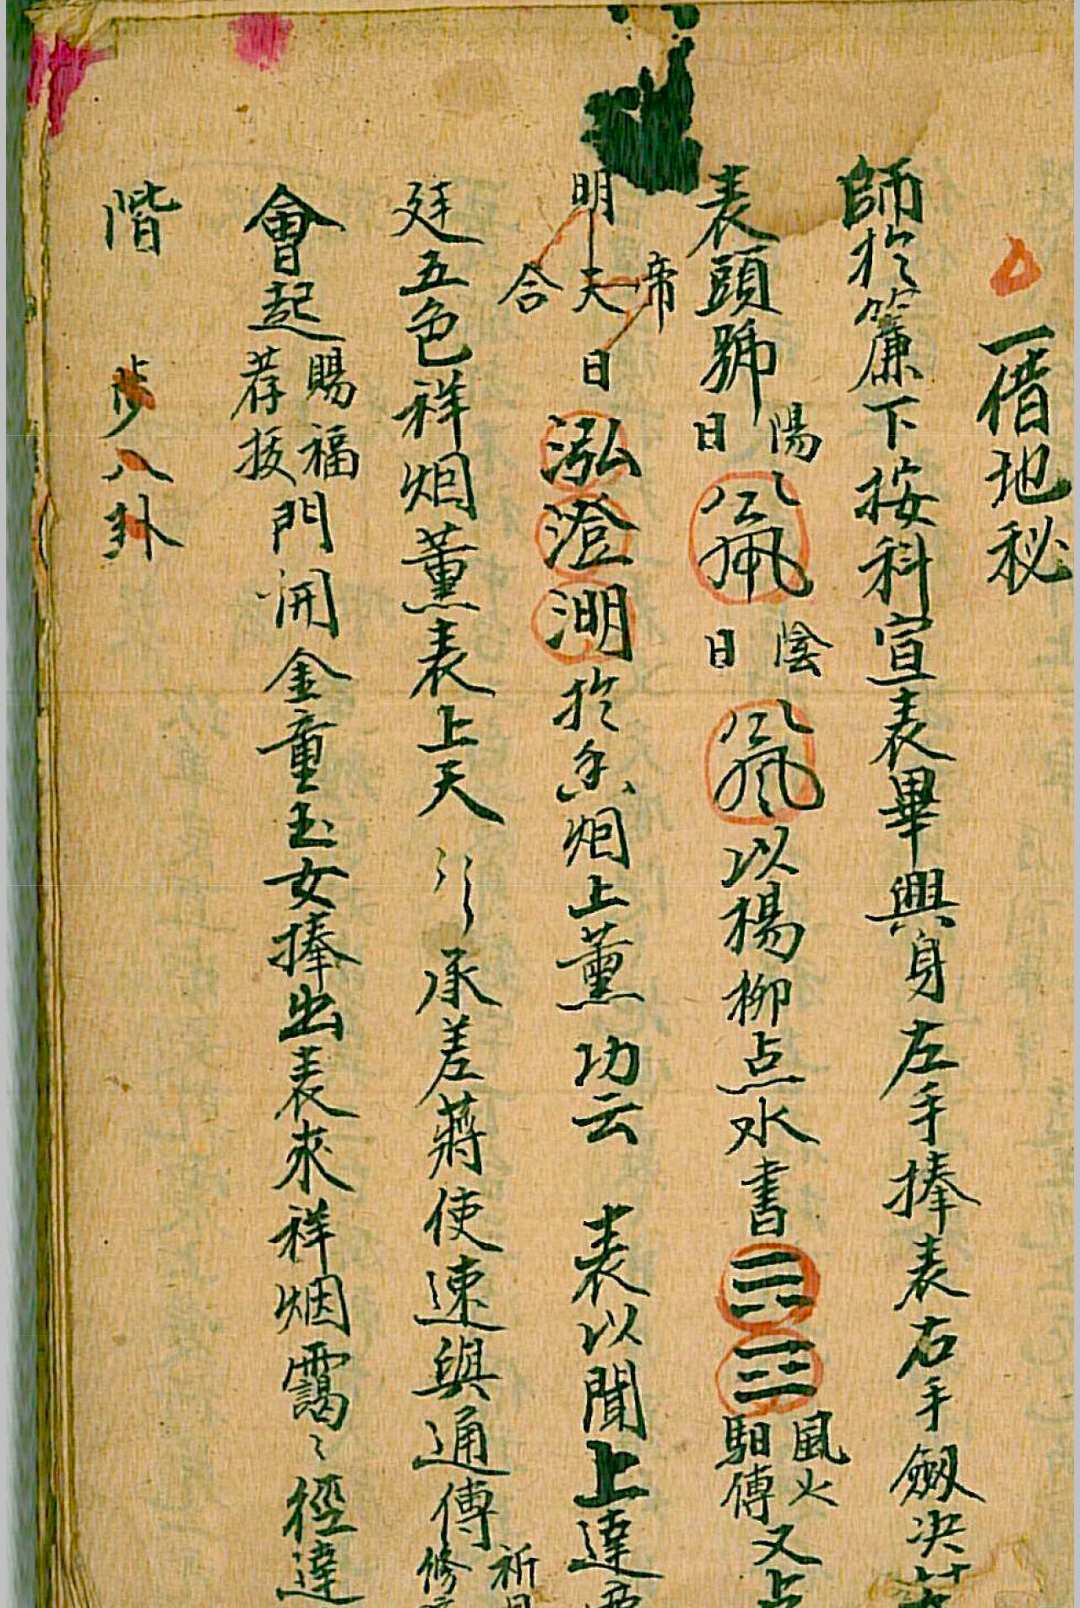 一借地秘
師於簾下按科宣表畢興身左手捧表右手劍决
表頭號 陽日 陰日 以楊柳点水書 ☴ ☲ 風火馹傳 又点
明 天 日 帝 合 泓澄溯 於香烟上薰功云 表以聞上達
廷五色祥烟薰表上天 承差蔣使速與通傳
會起 賜福 荐拔 門開金童玉女捧出表來祥烟靄〻徑達
階 步八卦